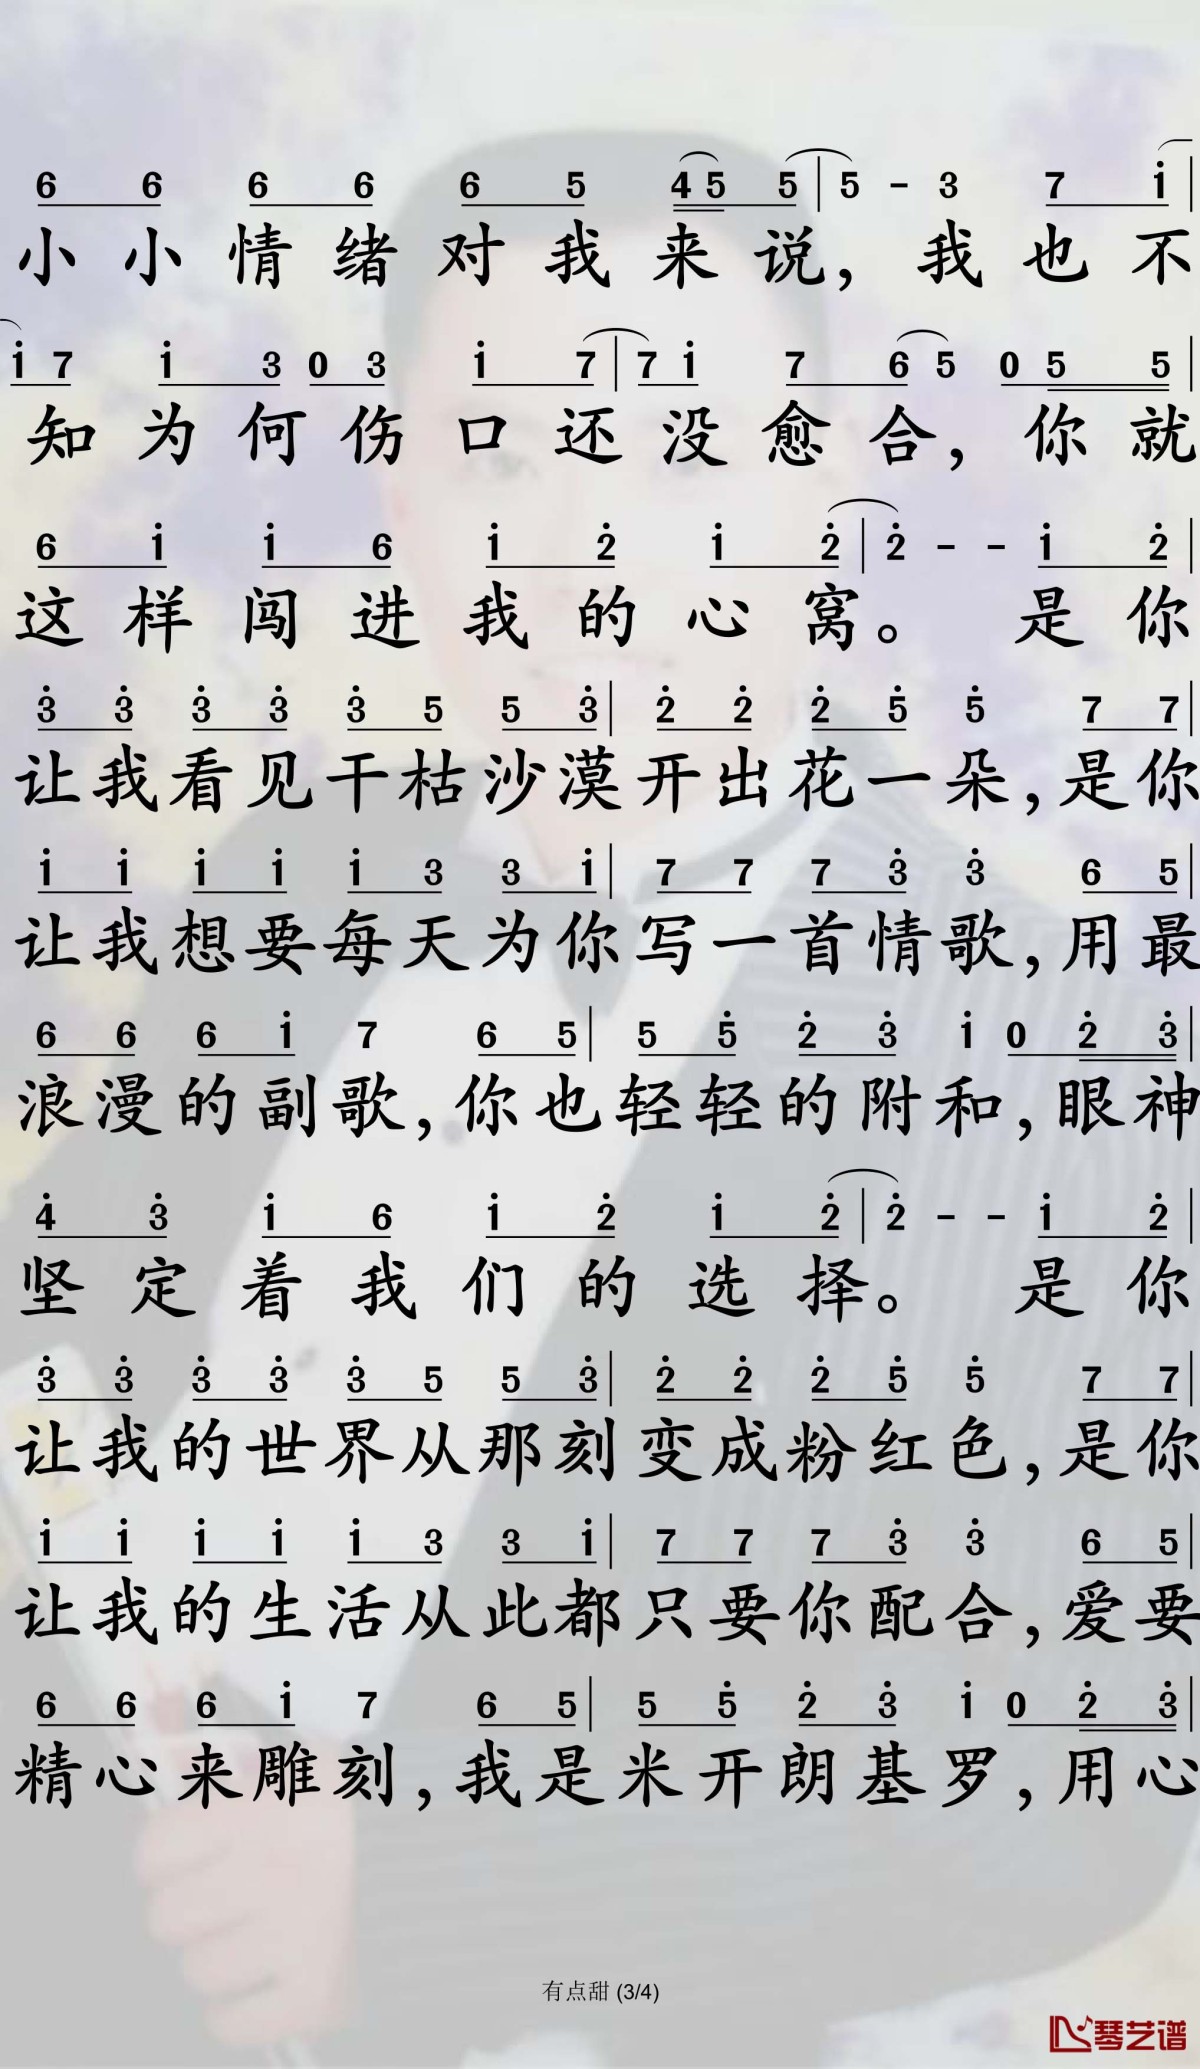 6 6 6 6 6 5 4 5 5 | 5 - 3 7 i |
小小情绪对我来说，我也不
i 7 i 3 0 3 i 7 | 7 i 7 6 5 0 5 5 |
知为何伤口还没愈合，你就
6 i i 6 i 2̇ i 2̇ | 2̇ - - i 2̇ |
这样闯进我的心窝。 是你
3̇ 3̇ 3̇ 3̇ 3̇ 5 5 3̇ | 2̇ 2̇ 2̇ 5̇ 5̇ 7 7 |
让我看见干枯沙漠开出花一朵，是你
i i i i i 3 3 i | 7 7 7 3̇ 3̇ 6 5 |
让我想要每天为你写一首情歌，用最
6 6 6 i 7 6 5 | 5 5̇ 2̇ 3̇ i 0 2̇ 3̇ |
浪漫的副歌，你也轻轻的附和，眼神
4̇ 3̇ i 6 i 2̇ i 2̇ | 2̇ - - i 2̇ |
坚定着我们的选择。 是你
3̇ 3̇ 3̇ 3̇ 3̇ 5 5 3̇ | 2̇ 2̇ 2̇ 5̇ 5̇ 7 7 |
让我的世界从那刻变成粉红色，是你
i i i i i 3 3 i | 7 7 7 3̇ 3̇ 6 5 |
让我的生活从此都只要你配合，爱要
6 6 6 i 7 6 5 | 5 5̇ 2̇ 3̇ i 0 2̇ 3̇ |
精心来雕刻，我是米开朗基罗，用心
有点甜 (3/4)
琴艺谱